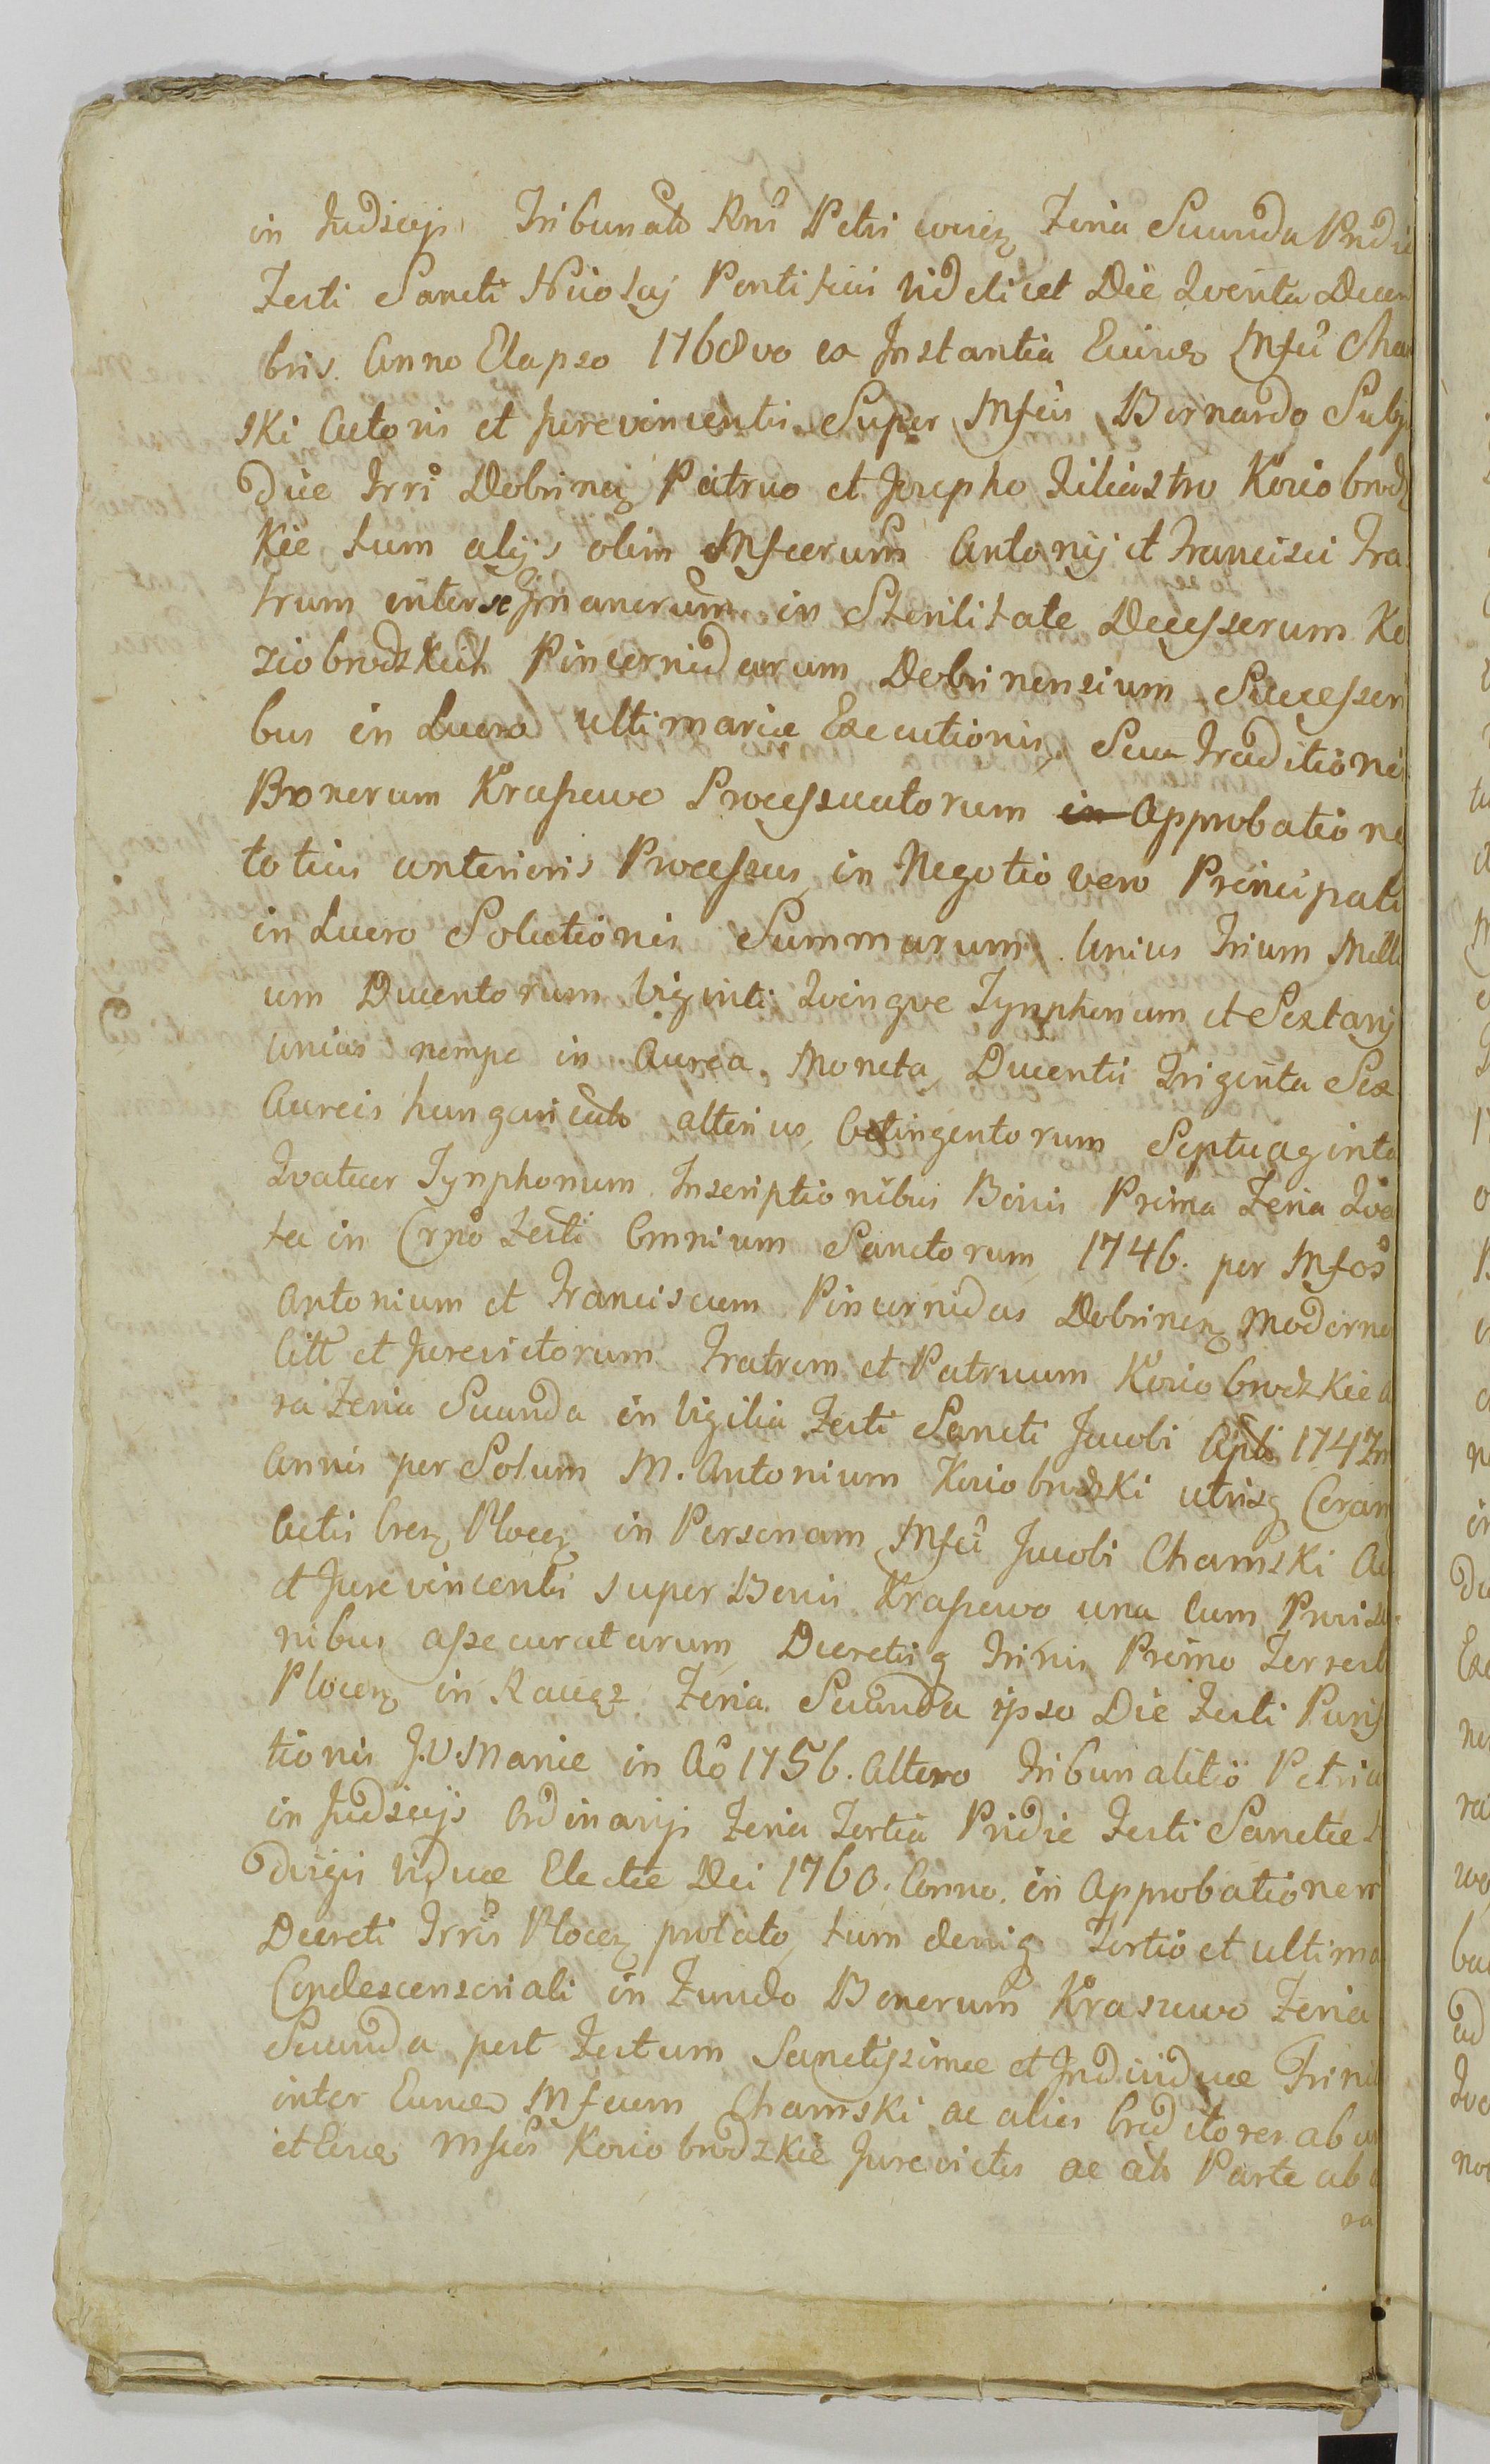 in Judicijs Tribunal: Rni Petri coviens Feria Secunda Pridie
Festi Sancti Nicolaj Pontificis videlicet Die Qvinta Decem
bris Anno Elapso 1768vo ex Instantia Eiusd Mfci Cham
ski Actoris et Jurevincentis Super Mfcis Bernardo Subju
dice Trri Dobrinen Patruo et Josepho Filiastro Koziobrodz
kie tum alijs olim Mfcorum Antonij et Francisci Fra
trum inter se Grmanorum in Sterilitate Decesserum Ko
ziobrodzkich Pincernidarum Dobrinensium Successori
bus in Lucro ultimariae Executionis Seu Traditionis
Bonorum Kraszewo Processuatorum in Approbatione
totius anterioris Processus in Negotio vero Principali
in Lucro Solutionis Summarum Unius Trium Milli
um Ducentorum Viginti Qvinqve Tynphonum et Sextarij
Unius nempe in Aurea Moneta Ducentis Triginta Sex
Aureis hungaricalb alterius Octingentorum Septuaginta
Qvatuor Tynphonum Inscriptionibus Binis Prima Feria Qvar
ta in Crno Festi Omnium Sanctorum 1746. per Mfcos
Antonium et Franciscum Pincernidas Dobrinen Moderno
Citt et Jurevictorum Fratrem et Patruum Koziobrodzkie a
ra Feria Secunda in Vigilia Festi Sancti Jacobi Apli 1747m
Annis per Solum M. Antonium Koziobrodzki utrisq Coram
Actis Cren Plocen in Personam Mfci Jacobi Chamski Ac
et Jurevincentis super Bonis Kraszewo una cum Provisio
nibus assecuratarum Decretis q Trinis Primo Terrestr
Plocen in Raciąz Feria Secunda ipso Die Festi Purif
tionis J.V. Mariae in Ao 1756. Altero Tribunalitio Petric
in Judicijs Ordinarijs Feria Tertia Pridie Festi Sanctae
dvigis Viduae Electae Dei 1760. Anno. in Approbationem
Decreti Trris Plocen prolato tum deniq Tertio et ultimo
Condescensoriali in Fundo Bonorum Kraszewo Feria
Secunda post Festum Sanctissimae et Individuae Trinit
inter Eund Mfcum Chamski ac alios Creditores ab un
et Eosd Mfcos Koziobrodzkie Jurevictis ac alb Parte ab a
ra